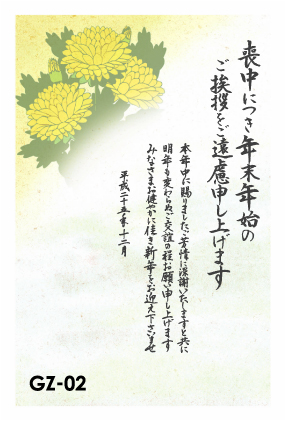 喪中につき年末年始の
ご挨拶をご遠慮申し上げます
本年中に賜りましたご芳情に深謝いたしますと共に
明年も変わらぬご交誼の程お願い申し上げます
みなさまお健やかに佳き新年をお迎え下さいませ
平成二十五年十二月
GZ-02